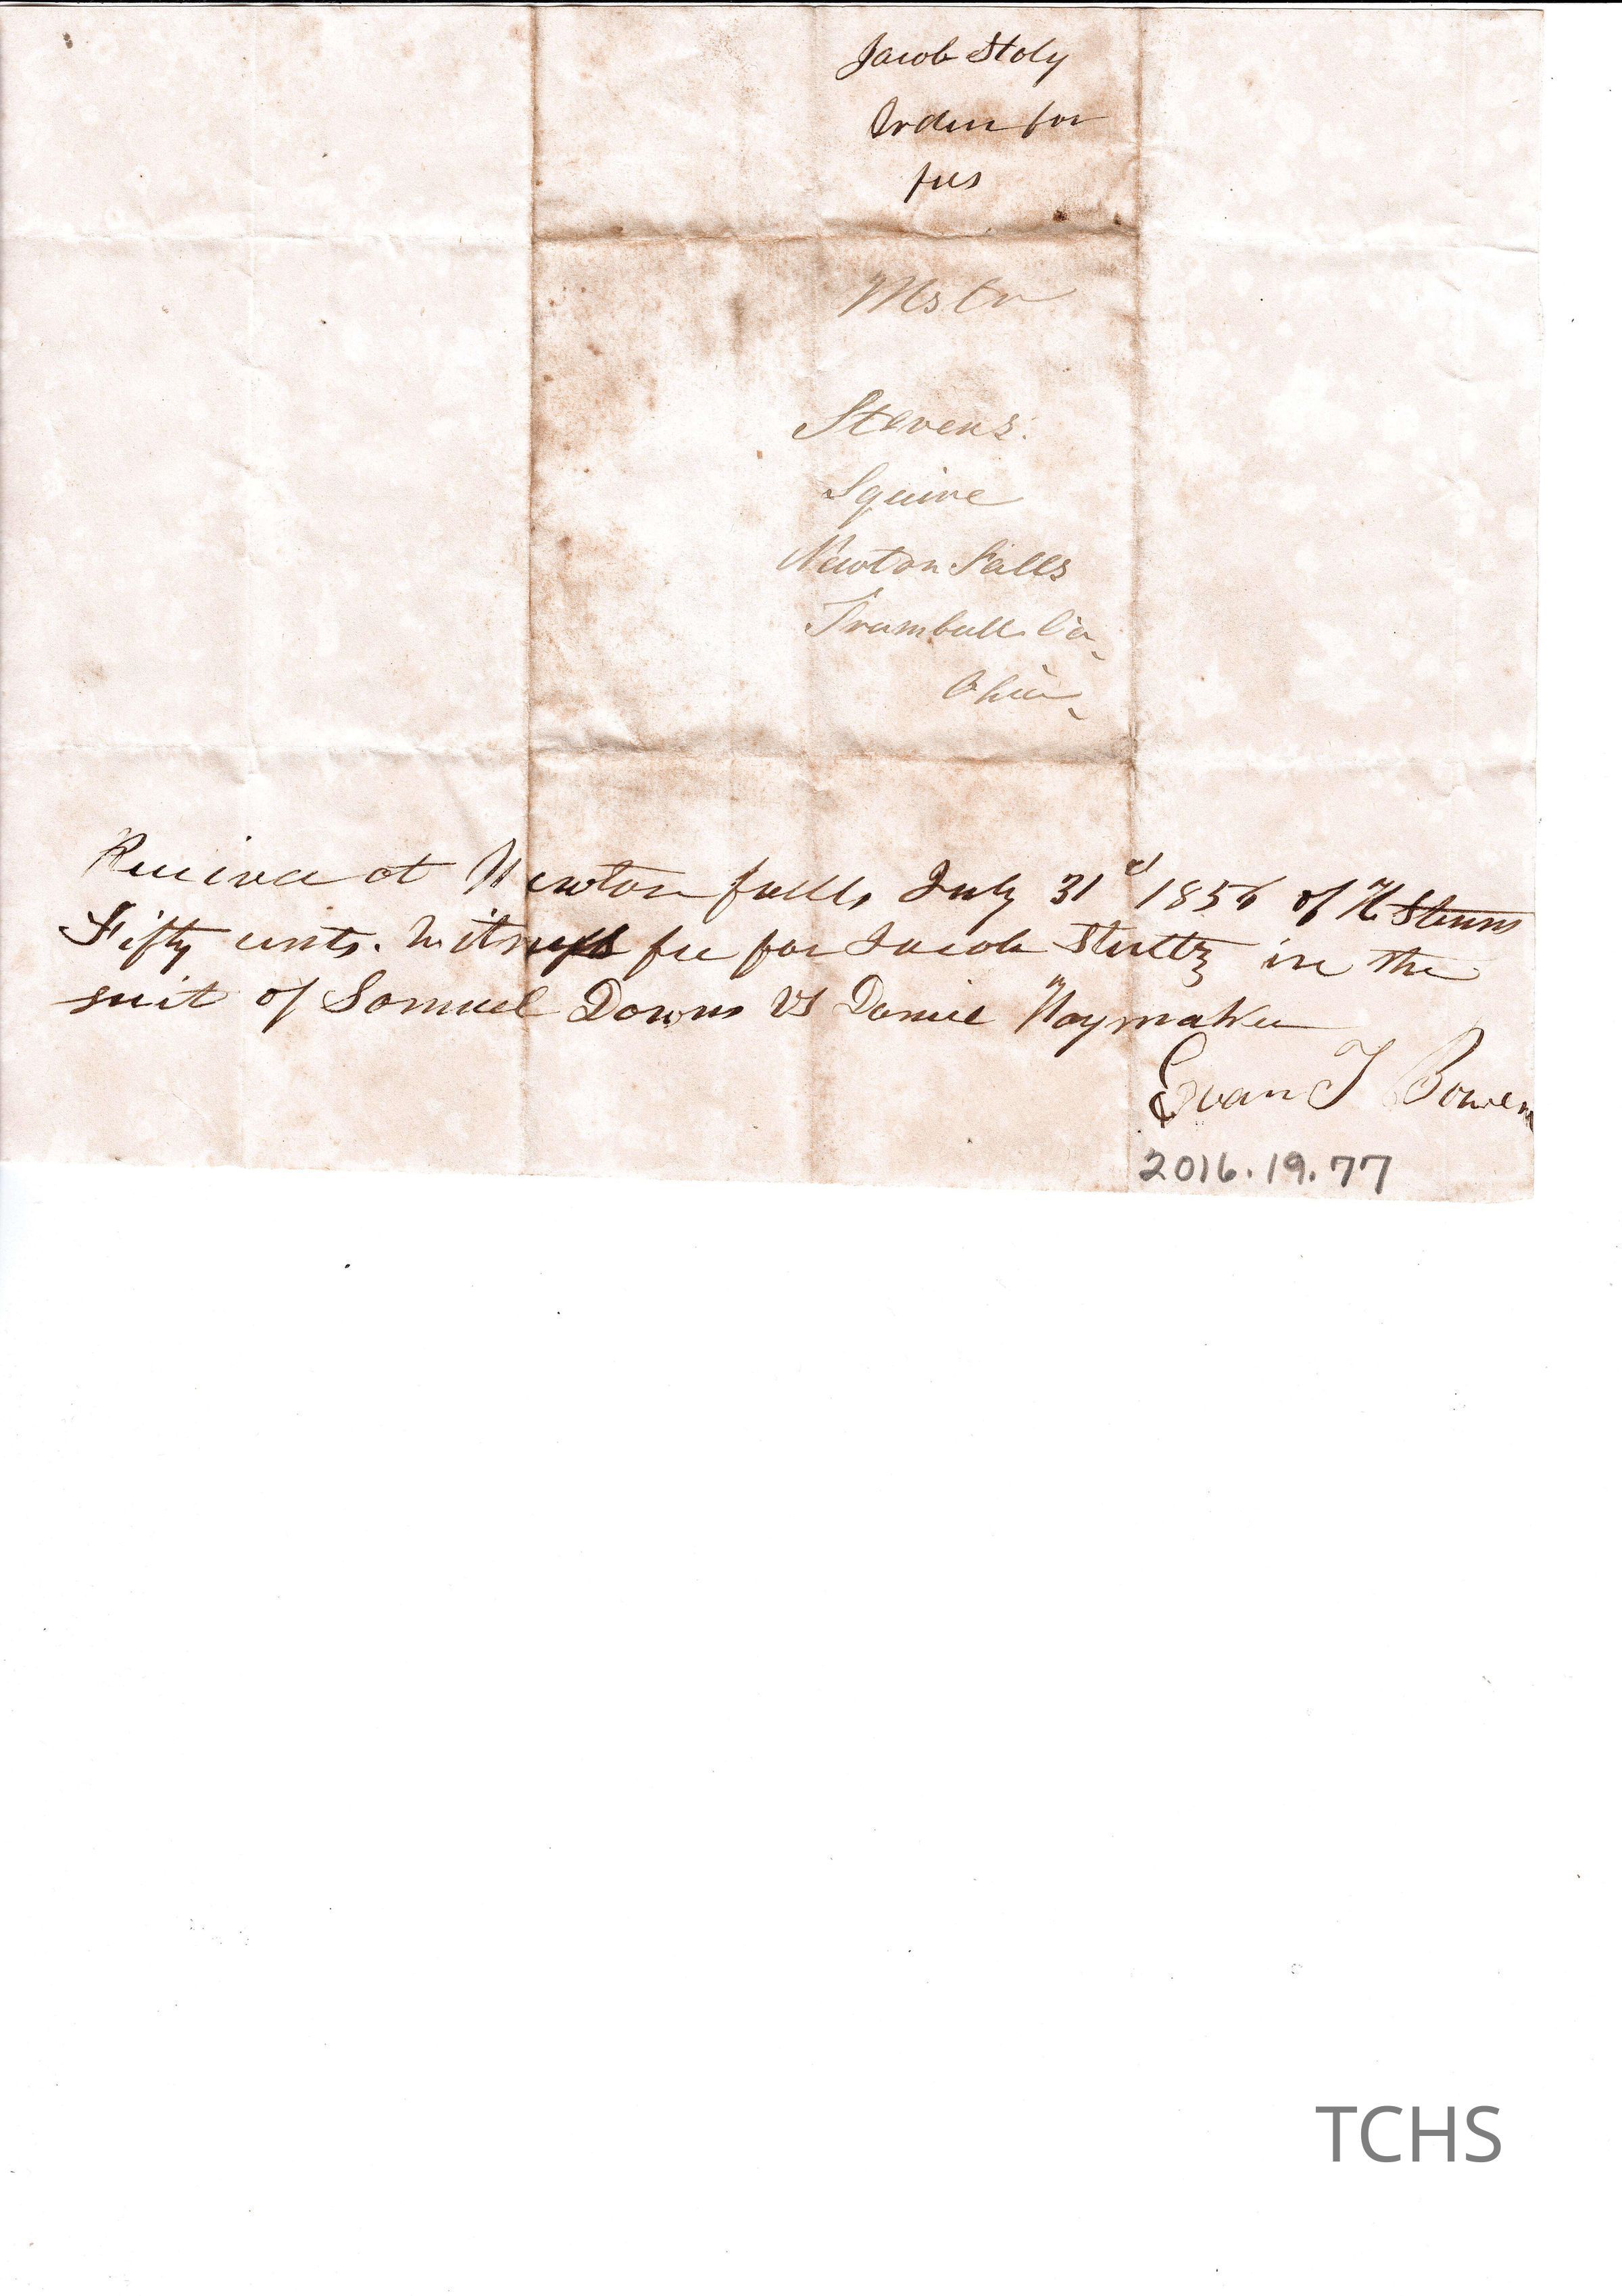 Jacob Stoly
Order for
fees
Mstr
Stevens.
Squire
Newton Falls
Trumbull Co
Ohio
Received at Newton falls July 31d 1856 of H Stevens
Fifty cents. Witness fee for Jacob Stultz in the
suit of Samuel Downs vs Daniel Haymaker
Evan T Bowen
2016.19.77
TCHS